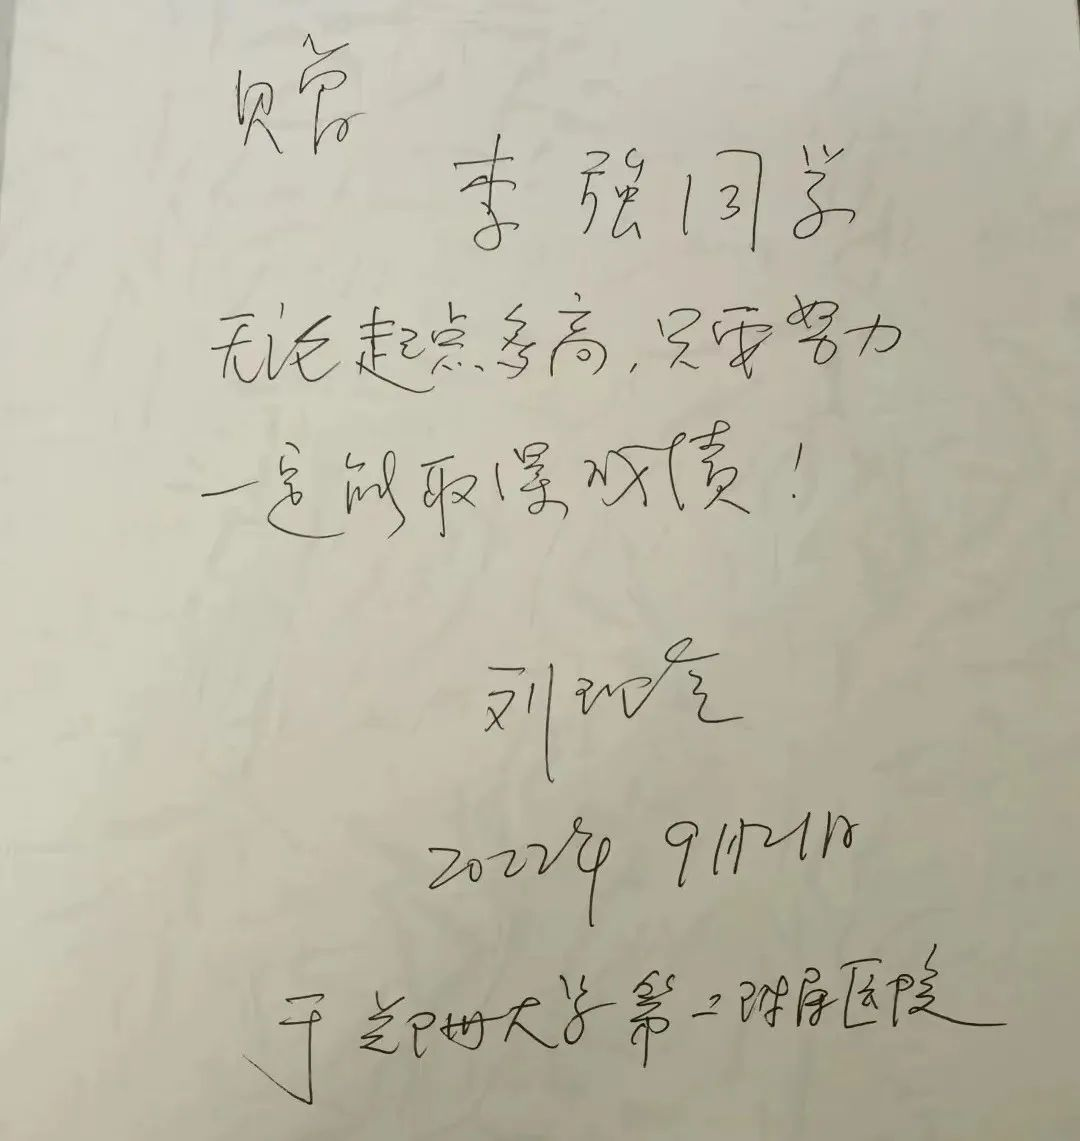 赠
李强同学
无论起点多高,只要努力
一定能取得成绩!
刘
2022年9月21日
于郑州大学第二附属医院